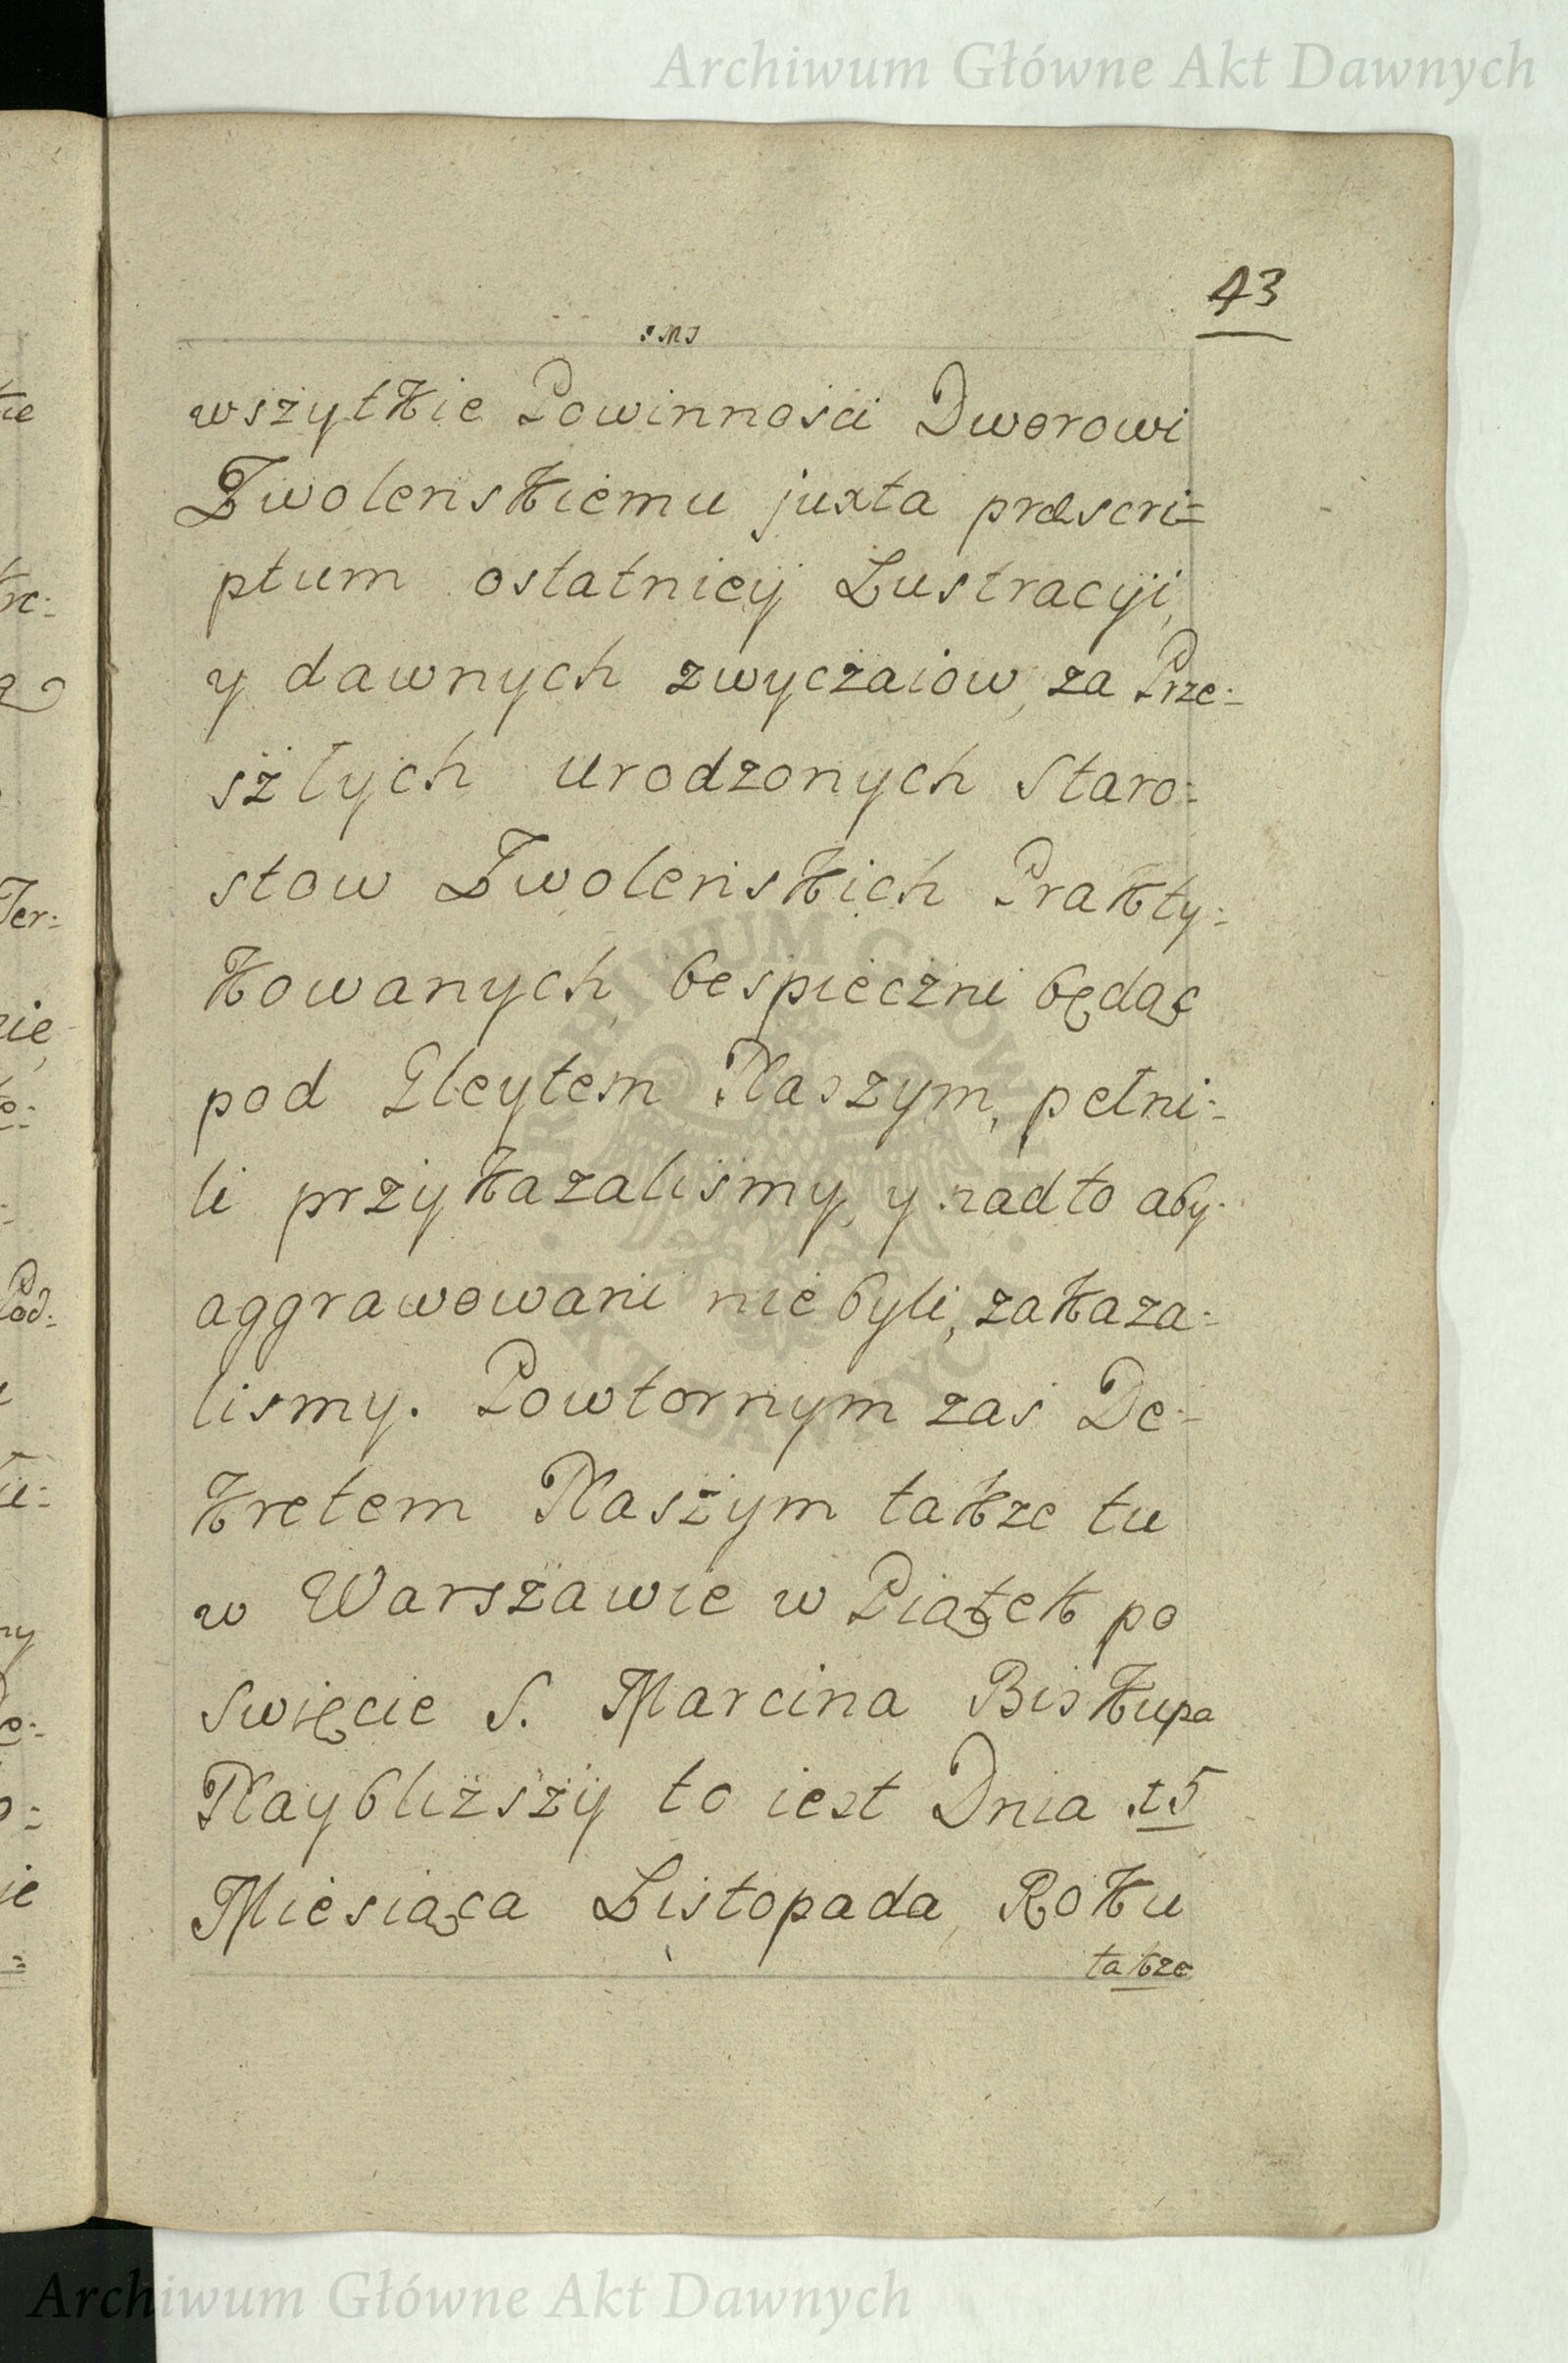 Archiwum Główne Akt Dawnych
43
wszytkie Powinności Dworowi
Zwolenskiemu juxta præscri=
ptum ostatniey Lustracyi,
y dawnych zwyczaiow, za Prze=
szłych urodzonych Staro=
stow Zwolenskich Prakty=
kowanych, bespieczni będąc
pod Gleytem Naszym, pełni=
li przykazaliśmy, y nadto aby
aggrawowani nie byli, zakaza=
lismy. Powtornym zaś De=
kretem Naszym takze tu
w Warszawie w Piątek po
Swięcie S. Marcina Biskupa
Naybliższy to iest Dnia 15
Miesiąca Listopada, Roku
takze
ARCHIWUM GŁÓWNE AKT DAWNYCH
Archiwum Główne Akt Dawnych